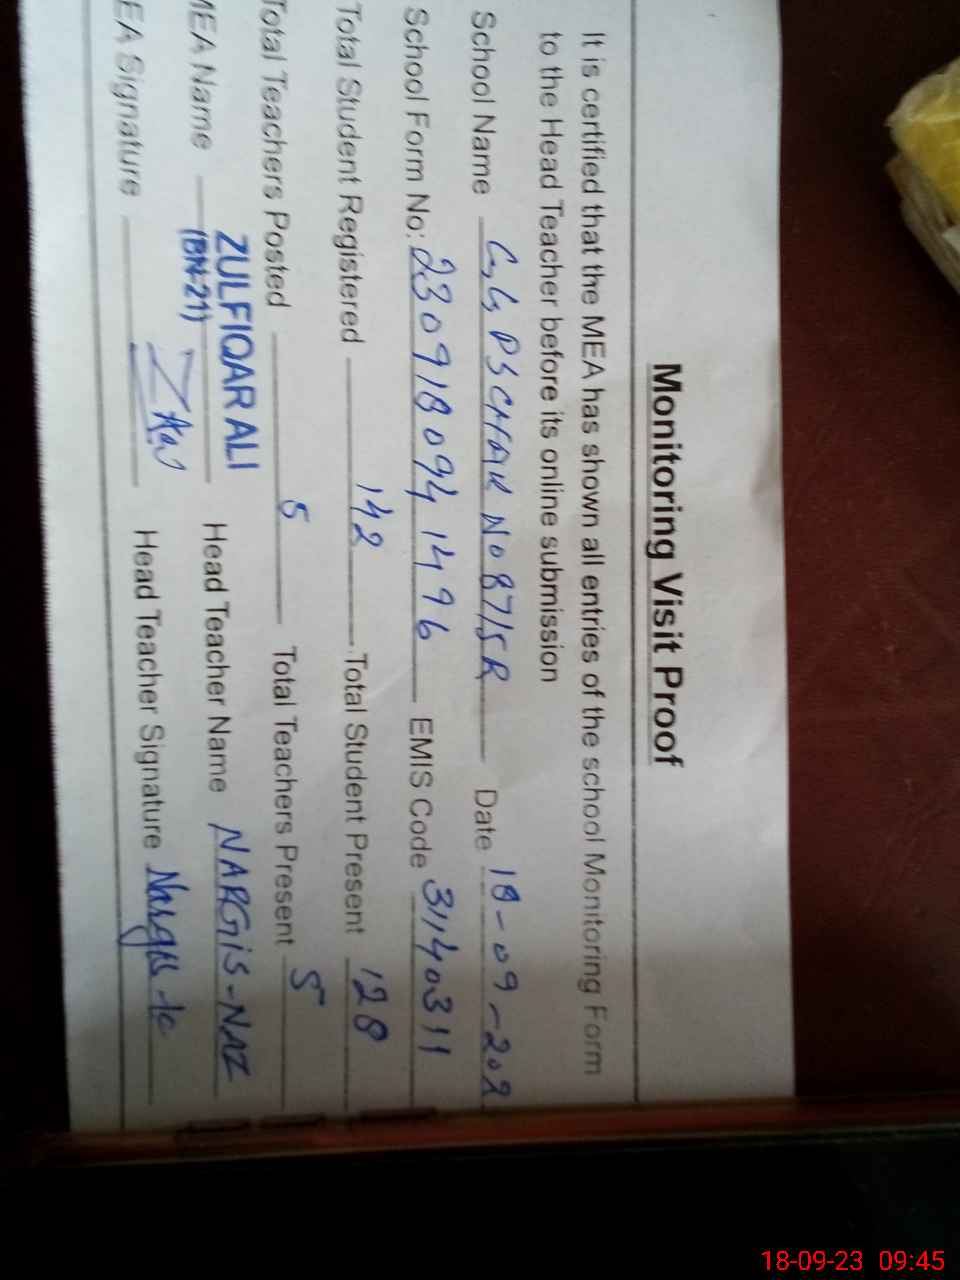 Monitoring Visit Proof
It is certified that the MEA has shown all entries of the school Monitoring Form
to the Head Teacher before its online submission
School Name G,G PS CHAK No 87/5R Date 18-09-202
School Form No: 230918094 1496 EMIS Code 31140311
Total Student Registered 142 Total Student Present 128
Total Teachers Posted 5 Total Teachers Present 5
MEA Name ZULFIQAR ALI Head Teacher Name NARGiS-NAZ
(BN-21)
EA Signature Head Teacher Signature Nargis
18-09-23 09:45